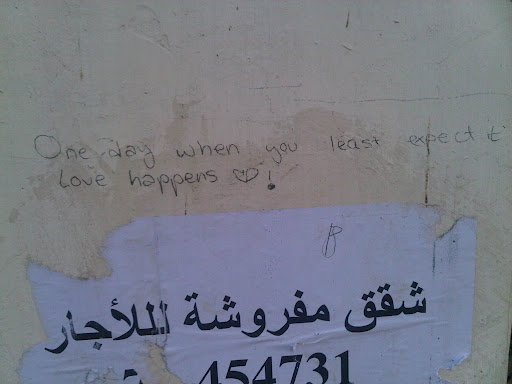 One day when you least expect it
Love happens ♡!
شقق مفروشة للأجار
454731